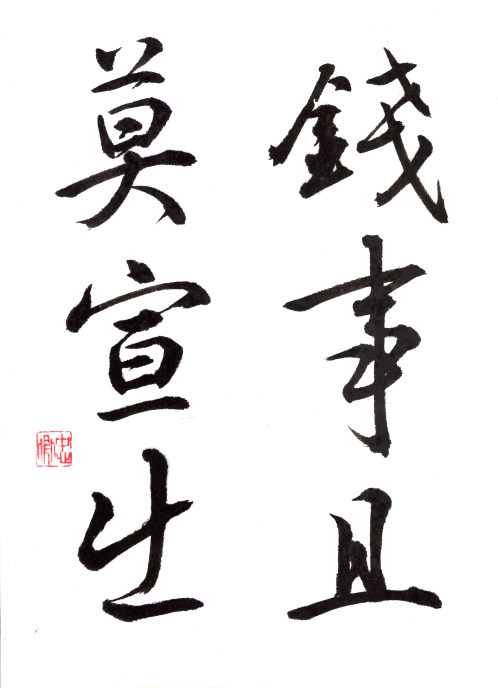 錢事且
莫宣出